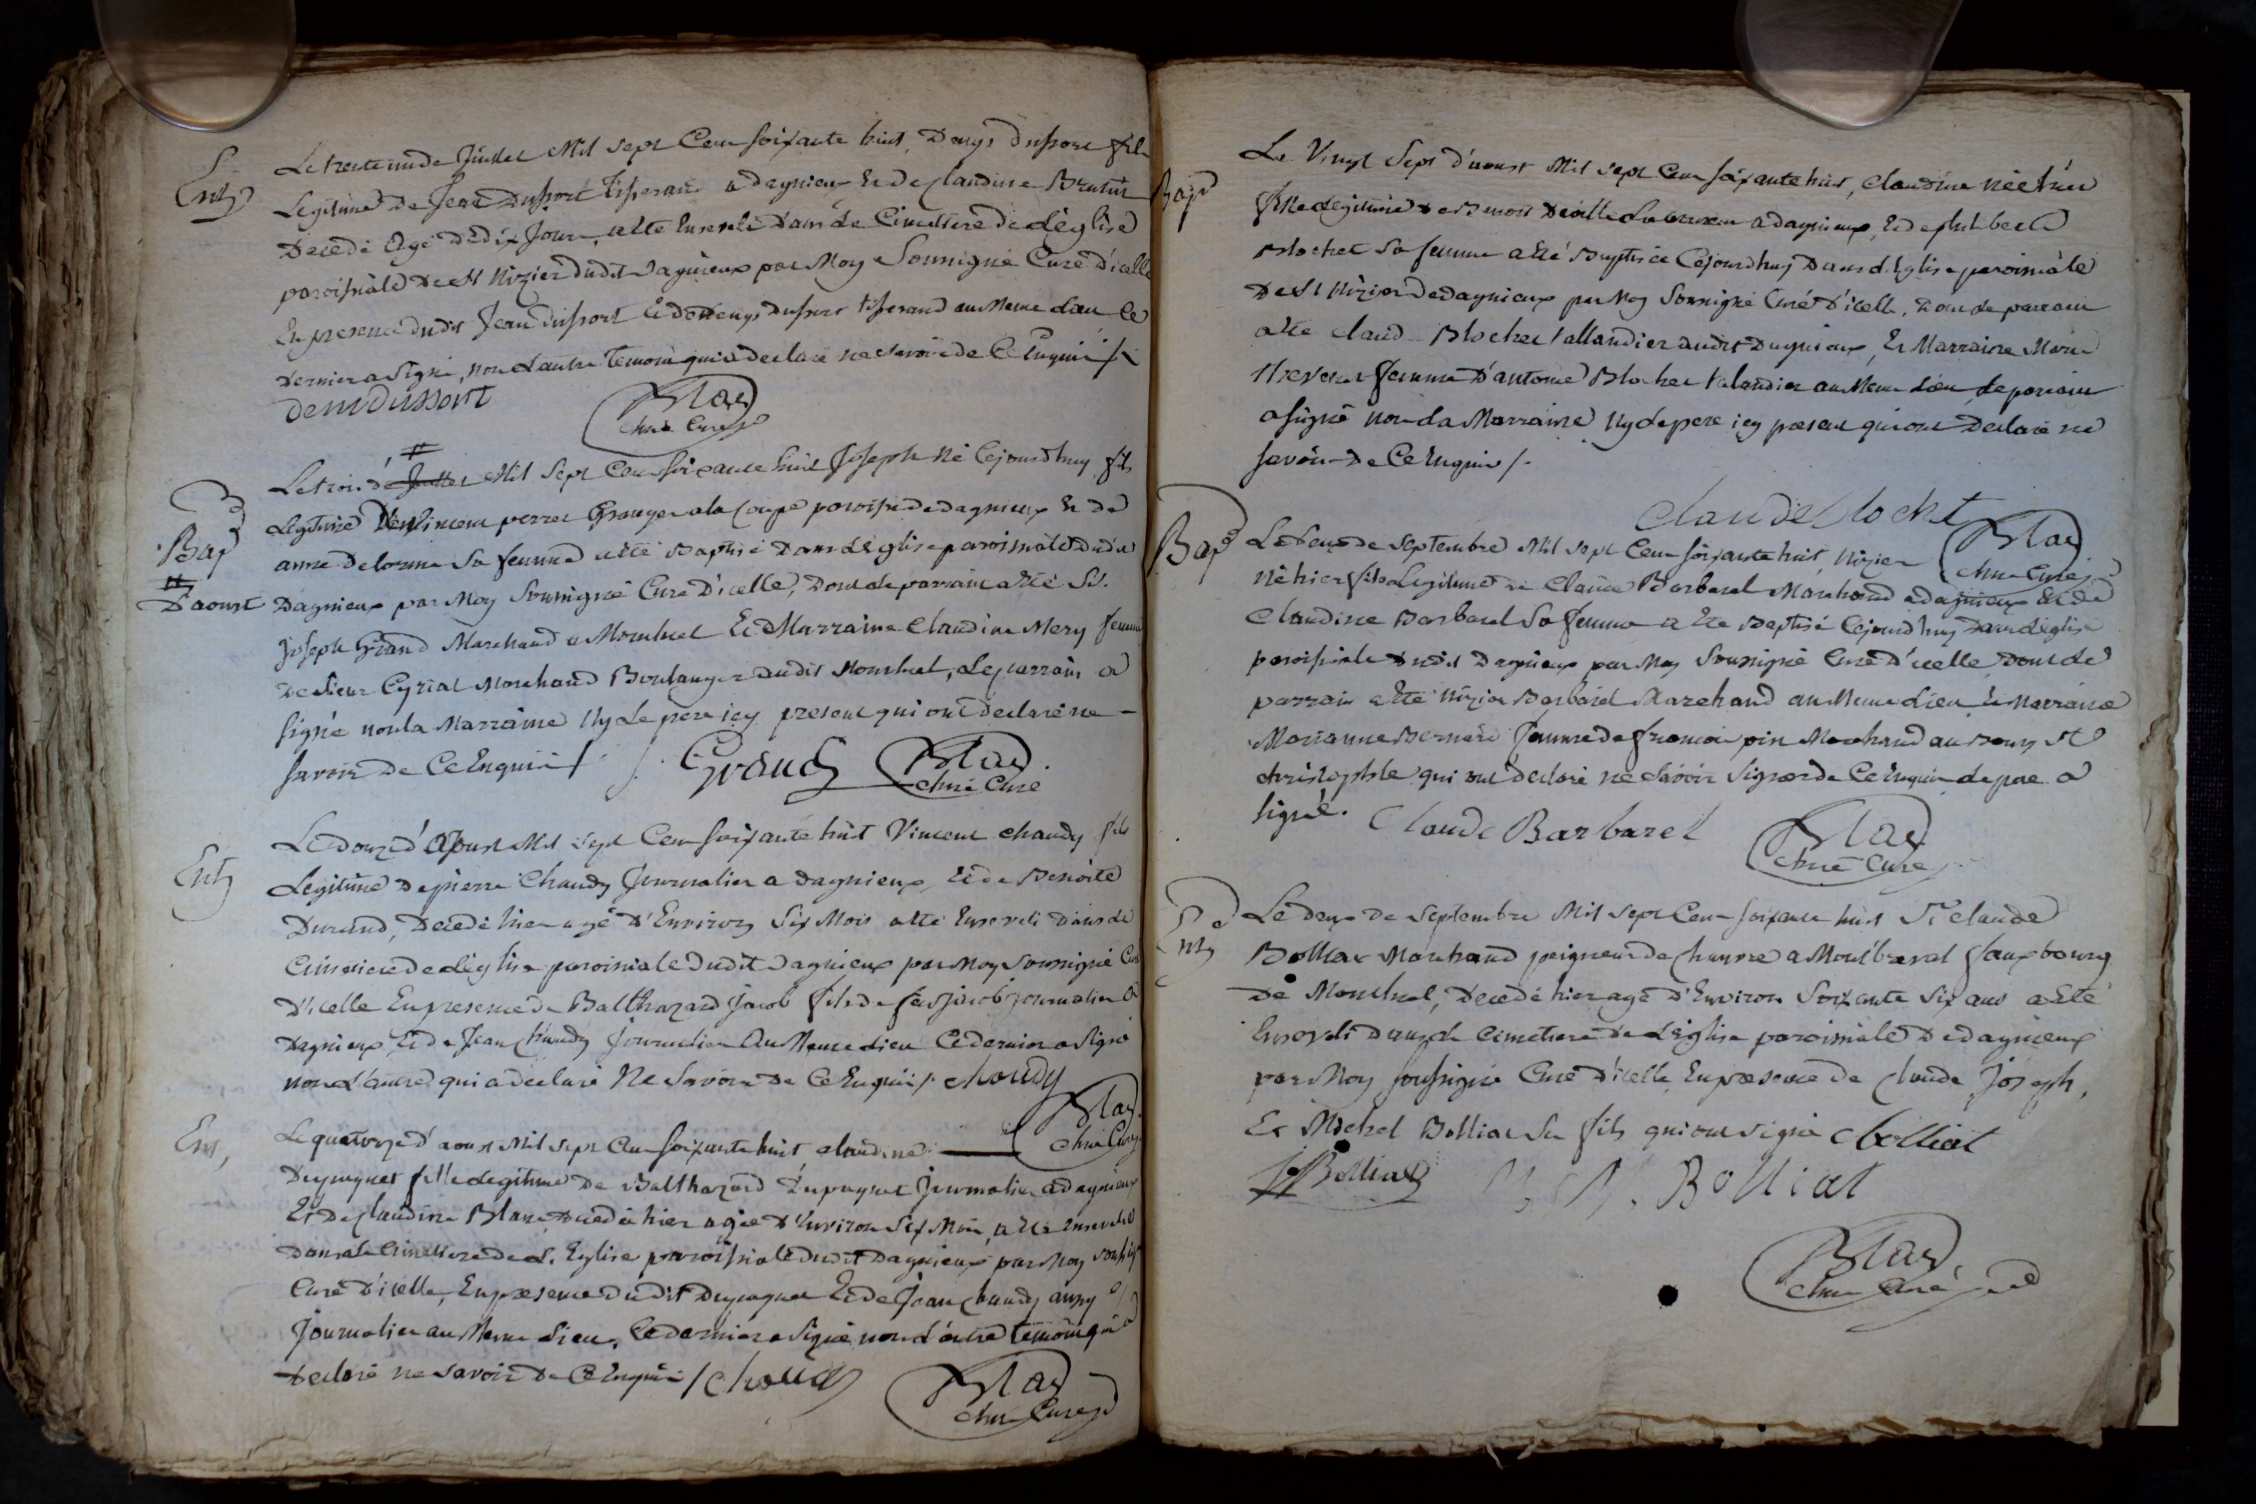 Ent
Le trente un de Juillet Mil sept Cent soixante huit, Denys Dussort fils
Legitime De Jean Dussort tisserand a dagnieux Et de Claudine
Decede Agé De dix Jours, a été Enseveli Dans le Cimetiere de l'église
paroissiale De St Nizier dudit Dagnieux par Moy Soussigné Curé D'icelle
En presence dudit Jean Dussort Et de Denys Dussort tisserand au Meme Lieu Ce
Dernier a signé, non L'autre temoin qui a declaré ne Savoir de Ce Enquis /.
deni dussort
Blad
Curé
Bap
Le trois de Juillet Mil Sept Cent soixante huit Joseph Né Cejourd'huy fils
Legitime De Vincent perret Granger a la Coupe paroisse de dagnieux Et de
anne Delorme Sa femme a été Baptisé Dans L'église paroissiale dudit
D'aoust
Dagnieux par Moy Soussigné Curé D'icelle, Dont Le parrain a été Sr.
Joseph Grand Marchand a Montluel Et Marraine Claudine Mery femme
De Sieur Cyriat Marchand Boulanger dudit Montluel, Le parrain a
signé non la Marraine Ny Le pere icy present qui ont declaré ne
savoir De Ce Enquis /.
Grand
Blad
Curé
Ent
Le douze d'Aoust Mil sept Cent soixante huit Vincent Chaudy fils
Legitime De pierre Chaudy Journalier a dagnieux, Et de Benoite
Durand, Decedé hier agé D'Environ Six Mois a été Enseveli Dans Le
Cimetiere de L'église paroissiale dudit Dagnieux par Moy Soussigné Curé
D'icelle En presence de Balthazard Jacob fils de Jacob journalier a
Dagnieux, Et de Jean Chaudy Journalier Au Meme Lieu Ce dernier a Signé
non L'autre qui a declaré Ne Savoir De Ce Enquis /. chaudy
Blad
Curé
Ent
Le quatorze d'aoust Mil sept Cent soixante huit Claudine
fille Legitime De Balthazard Journalier a dagnieux
Et De Claudine Blanc Decedée hier agée D'Environ Six Mois, a été Ensevelie
Dans Le Cimetiere de L'Eglise paroissiale Dudit Dagnieux par Moy soussigné
Curé D'icelle, En presence Dudit Et de Jean Chaudy aussy
Journalier au Meme Lieu, Ce dernier a Signé non L'autre temoin qui a
Declaré ne savoir De Ce Enquis / chaudy
Blad
Curé
Bap
Le Vingt Sept d'aoust Mil sept Cent soixante huit, Claudine née hier
fille Legitime De Benoit Laboureur a dagnieux, Et de philberte
Blochet Sa femme a été Baptisée Cejourd'huy Dans L'Eglise paroissiale
De St Nizier De dagnieux par Moy Soussigné Curé D'icelle, Dont Le parrain
a été Claude Blochet tallandier audit Dagnieux, Et Marraine Marie
femme D'antoine Blochet talandier au Meme Lieu, Le parrain
a signé non La Marraine Ny Le pere icy present qui ont Declaré ne
savoir De Ce Enquis /.
Claude blochet
Blad
Curé
Bap
Le Deux de Septembre Mil sept Cent soixante huit, Nizier
né hier fils Legitime De Claude Barbaret Marchand a dagnieux Et de
Claudine Barbaret Sa femme a été Baptisé Cejourd'huy Dans L'église
paroissiale Dudit Dagnieux par Moy Soussigné Curé D'icelle, Dont Le
parrain a été Nizier Barbaret Marchand au Meme Lieu, Et Marraine
Marianne Bernard femme de francois pin Marchand au Bourg St
christophle qui ont declaré ne Savoir Signer de Ce Enquis Le pere a
signé.
Claude Barbaret
Blad
Curé
Ent
Le Deux De Septembre Mil Sept Cent soixante huit Sr Claude
Bolliat Marchand peigneur de Chanvre a Montbreval fauxbourg
De Montluel, Decedé hier agé D'Environ Soixante Six ans a été
Enseveli Dans Le Cimetiere De L'église paroissiale De dagnieux
par Moy soussigné Curé D'icelle, En presence de Claude Joseph,
Et Michel Bolliat Ses fils qui ont signé cbolliat
J Bolliat
M. Bolliat
Blad
Curé